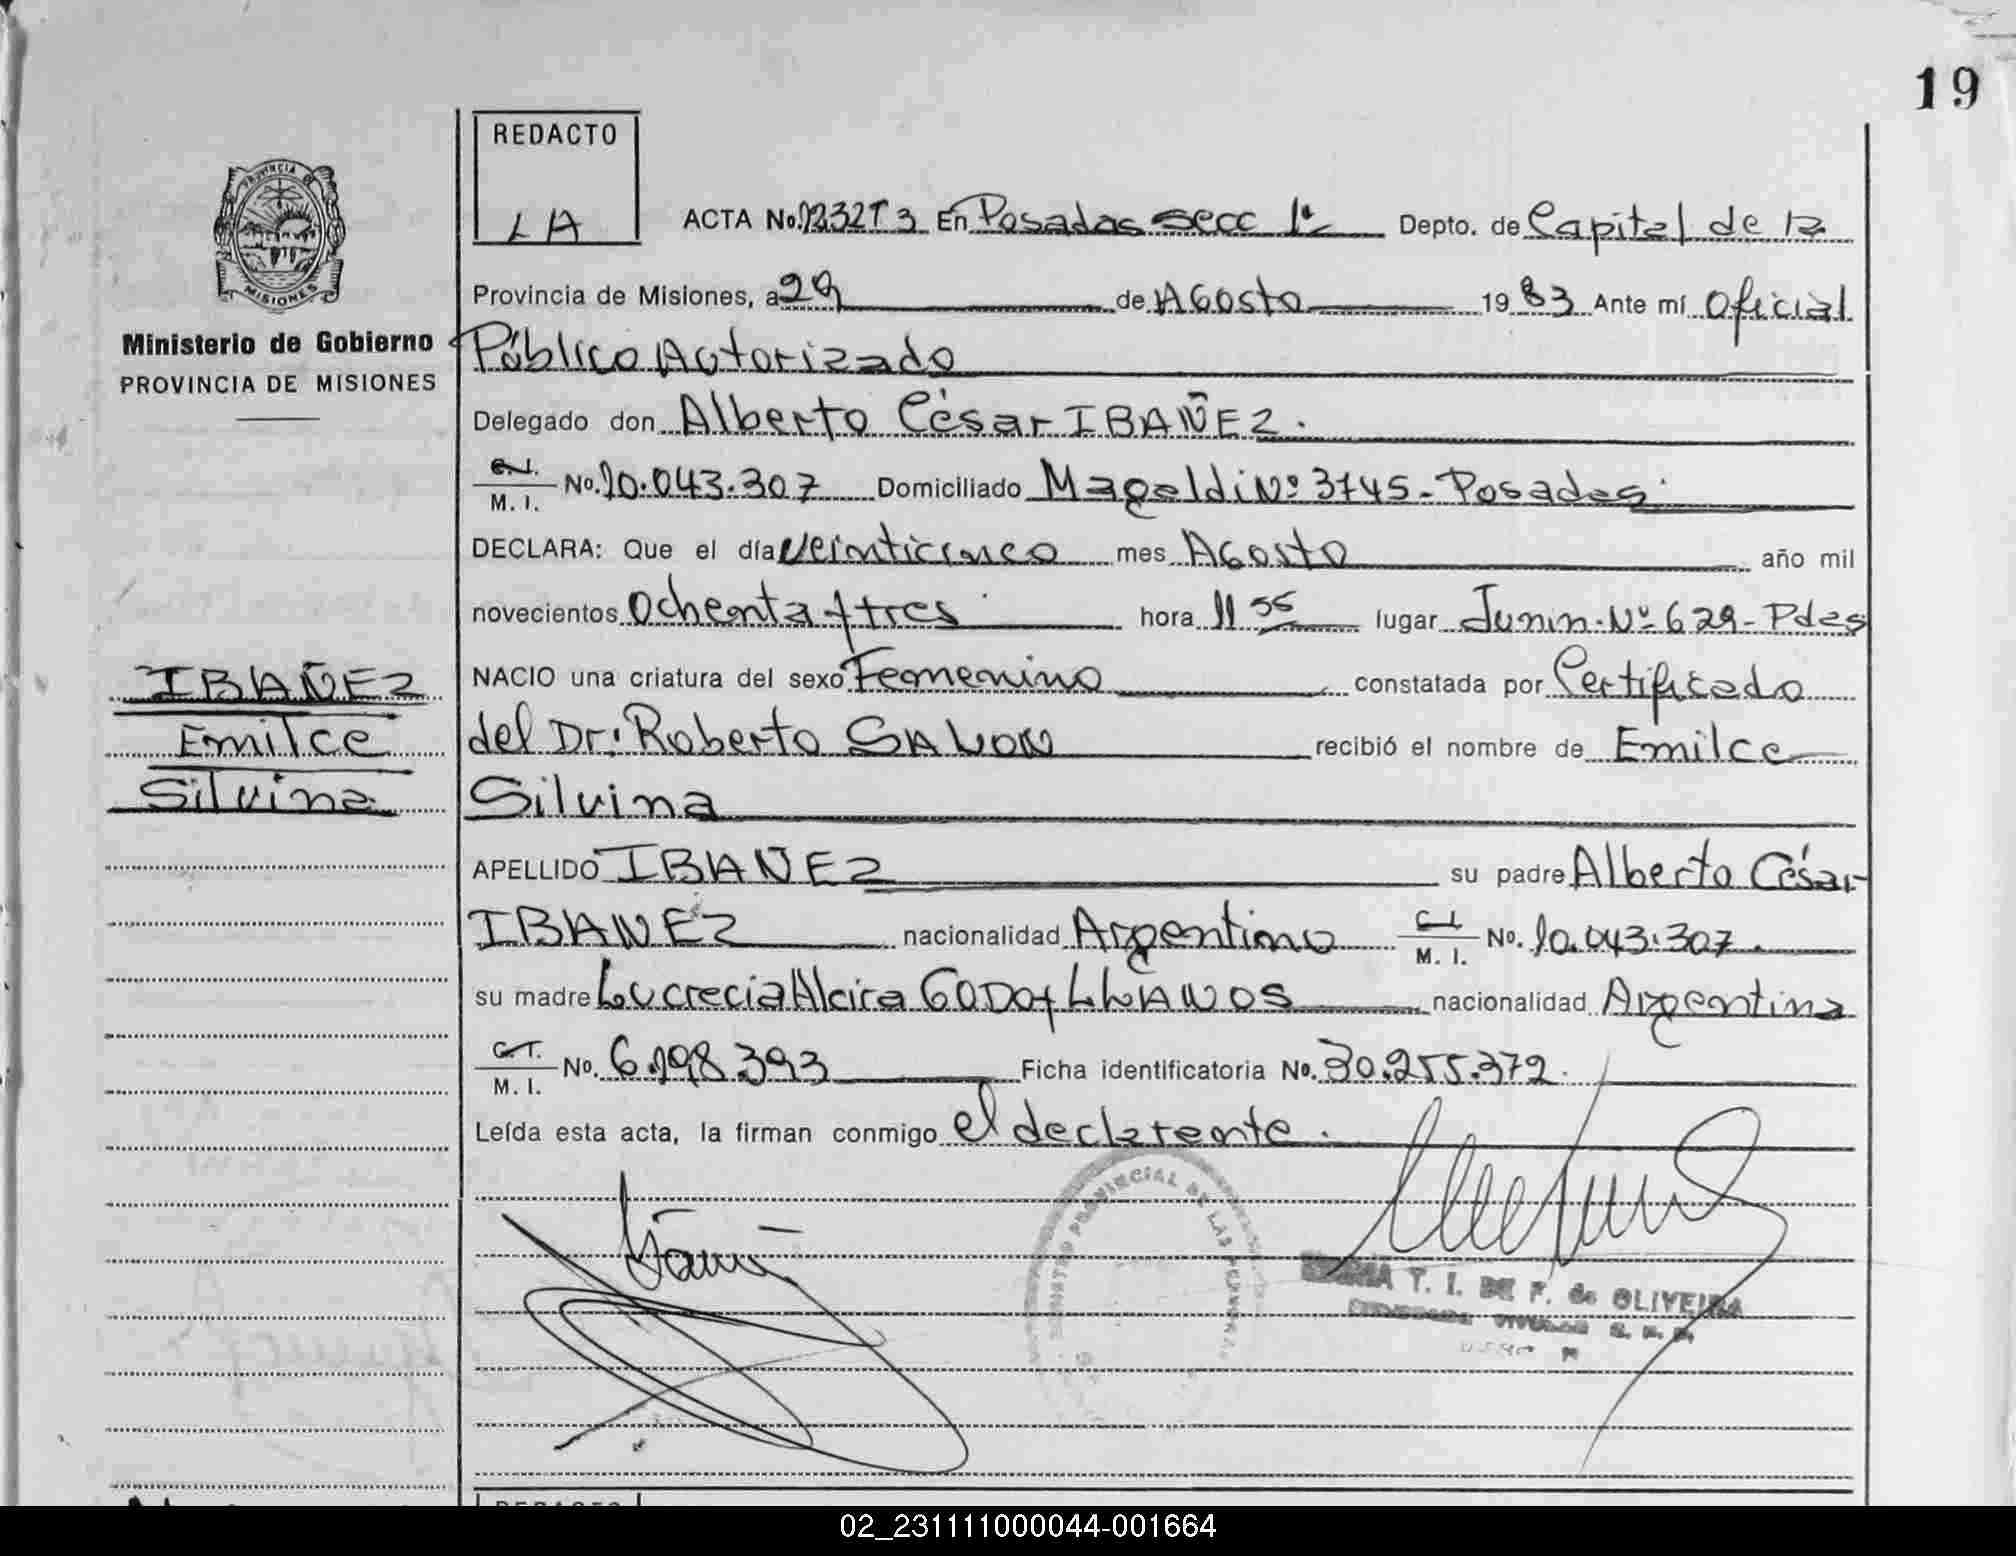 19
REDACTO
LA
ACTA No. 1232T3 En Posadas secc 1ª Depto. de Capital de la
Provincia de Misiones, a 29 de Agosto 1983 Ante mí Oficial
Público Autorizado
Delegado don Alberto César IBAÑEZ.
C.I. M. I. No. 10.043.307 Domiciliado Magaldi Nº 3745 - Posadas
DECLARA: Que el día veinticinco mes Agosto año mil
novecientos Ochenta y tres hora 11 55 lugar Junin Nº 629 - Pdas
NACIO una criatura del sexo Femenino constatada por Certificado
del Dr. Roberto SALON recibió el nombre de Emilce
Silvina
APELLIDO IBAÑEZ su padre Alberto César
IBAÑEZ nacionalidad Argentino C.I. M. I. No. 10.043.307.
su madre Lucrecia Alcira GODOY LLANOS nacionalidad Argentina
C.I. M. I. No. 6.198.393 Ficha identificatoria No. 30.255.372.
Leída esta acta, la firman conmigo el declarante.
PROVINCIA DE
MISIONES
Ministerio de Gobierno
PROVINCIA DE MISIONES
IBAÑEZ
Emilce
Silvina
REGISTRO PROVINCIAL DE LAS PERSONAS
T. I. DE F. de OLIVEIRA
REDACTO
02_231111000044-001664